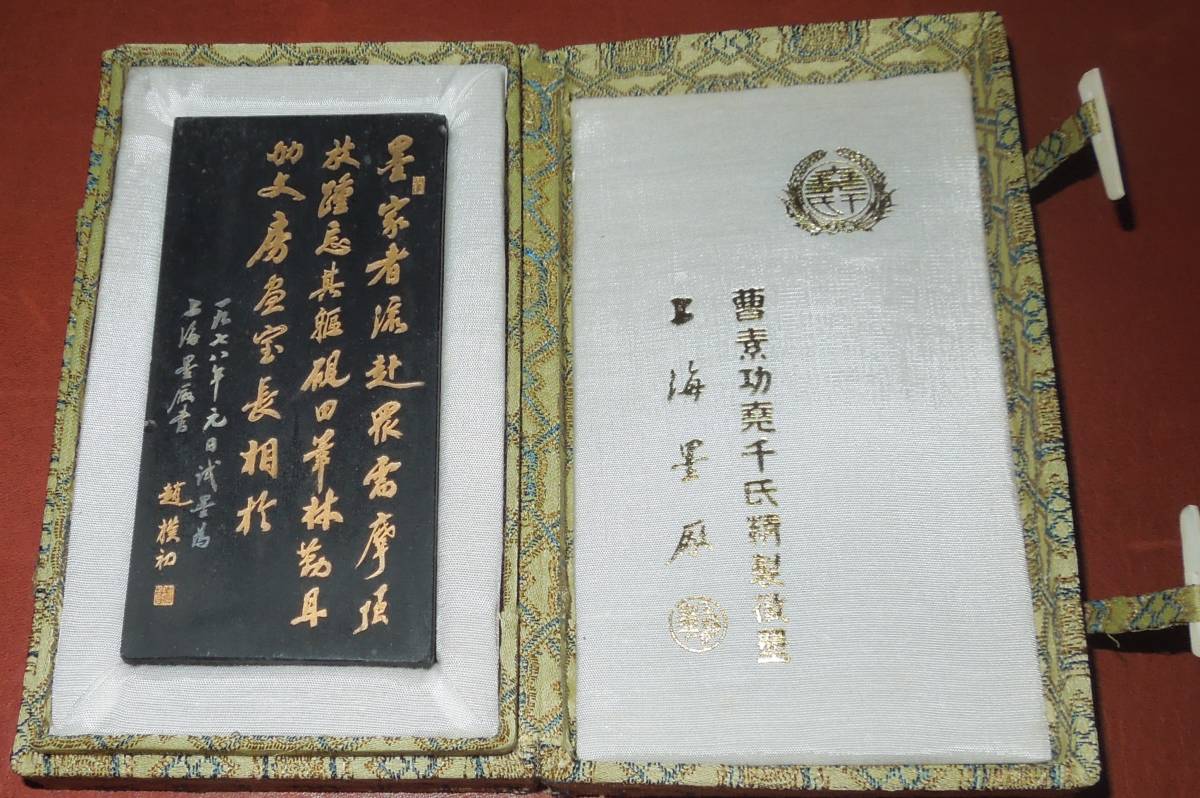 墨家者流赴眾需摩頂
放踵忘其軀硯田筆林勤耳
助文房畫室長相於
一九七八年元日試墨為
上海墨廠書
趙樸初
曹素功堯千氏精製徽墨
上海墨厰